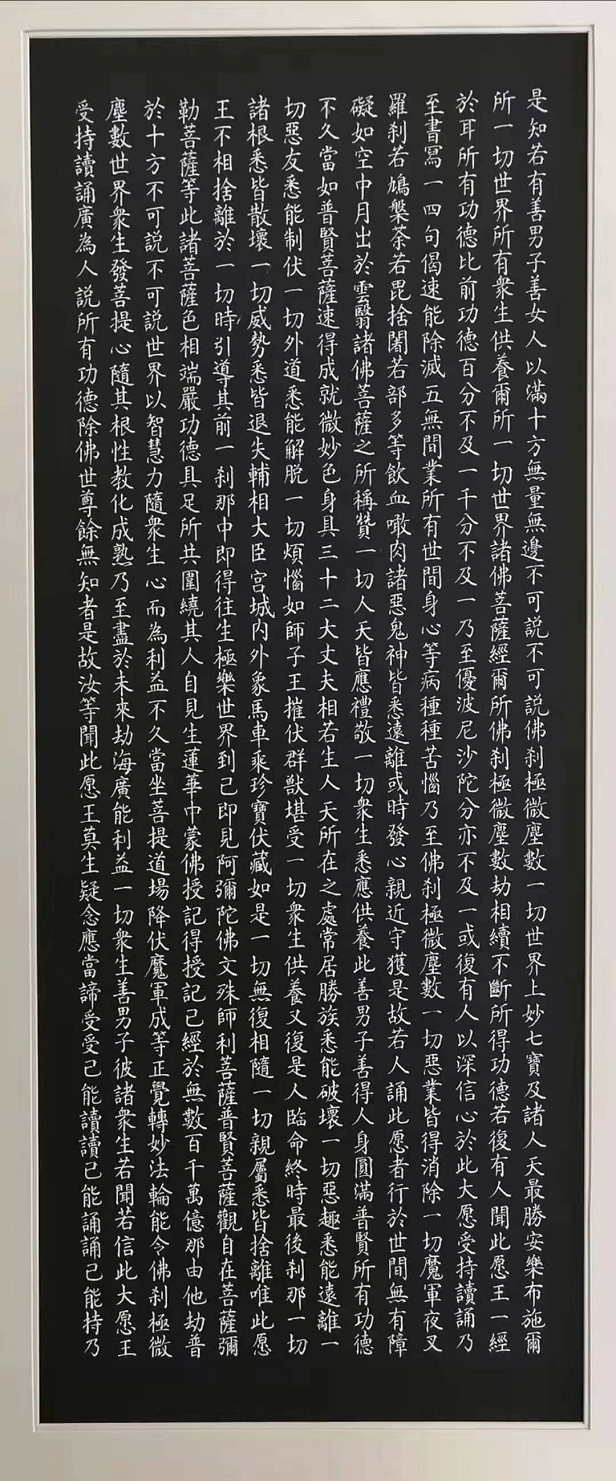 是知若有善男子善女人以滿十方無量無邊不可説不可説佛刹極微塵數一切世界上妙七寶及諸人天最勝安樂布施爾
所一切世界所有衆生供養爾所一切世界諸佛菩薩經爾所佛刹極微塵數劫相續不斷所得功德若復有人聞此愿王一經
於耳所有功德比前功德百分不及一千分不及一乃至優波尼沙陀分亦不及一或復有人以深信心於此大愿受持讀誦乃
至書寫一四句偈速能除滅五無間業所有世間身心等病種種苦惱乃至佛刹極微塵數一切惡業皆得消除一切魔軍夜叉
羅刹若鳩槃荼若毘捨闍若部多等飲血噉肉諸惡鬼神皆悉遠離或時發心親近守獲是故若人誦此愿者行於世間無有障
礙如空中月出於雲翳諸佛菩薩之所稱贊一切人天皆應禮敬一切衆生悉應供養此善男子善得人身圓滿普賢所有功德
不久當如普賢菩薩速得成就微妙色身具三十二大丈夫相若生人天所在之處常居勝族悉能破壞一切惡趣悉能遠離一
切惡友悉能制伏一切外道悉能解脱一切煩惱如師子王摧伏群獸堪受一切衆生供養又復是人臨命終時最後刹那一切
諸根悉皆散壞一切威勢悉皆退失輔相大臣宮城内外象馬車乘珍寶伏藏如是一切無復相隨一切親屬悉皆捨離唯此愿
王不相捨離於一切時引導其前一刹那中即得往生極樂世界到已即見阿彌陀佛文殊師利菩薩普賢菩薩觀自在菩薩彌
勒菩薩等此諸菩薩色相端嚴功德具足所共圍繞其人自見生蓮華中蒙佛授記得授記已經於無數百千萬億那由他劫普
於十方不可説不可説世界以智慧力隨衆生心而為利益不久當坐菩提道場降伏魔軍成等正覺轉妙法輪能令佛刹極微
塵數世界衆生發菩提心隨其根性教化成熟乃至盡於未來劫海廣能利益一切衆生善男子彼諸衆生若聞若信此大愿王
受持讀誦廣為人説所有功德除佛世尊餘無知者是故汝等聞此愿王莫生疑念應當諦受受已能讀讀已能誦誦已能持乃